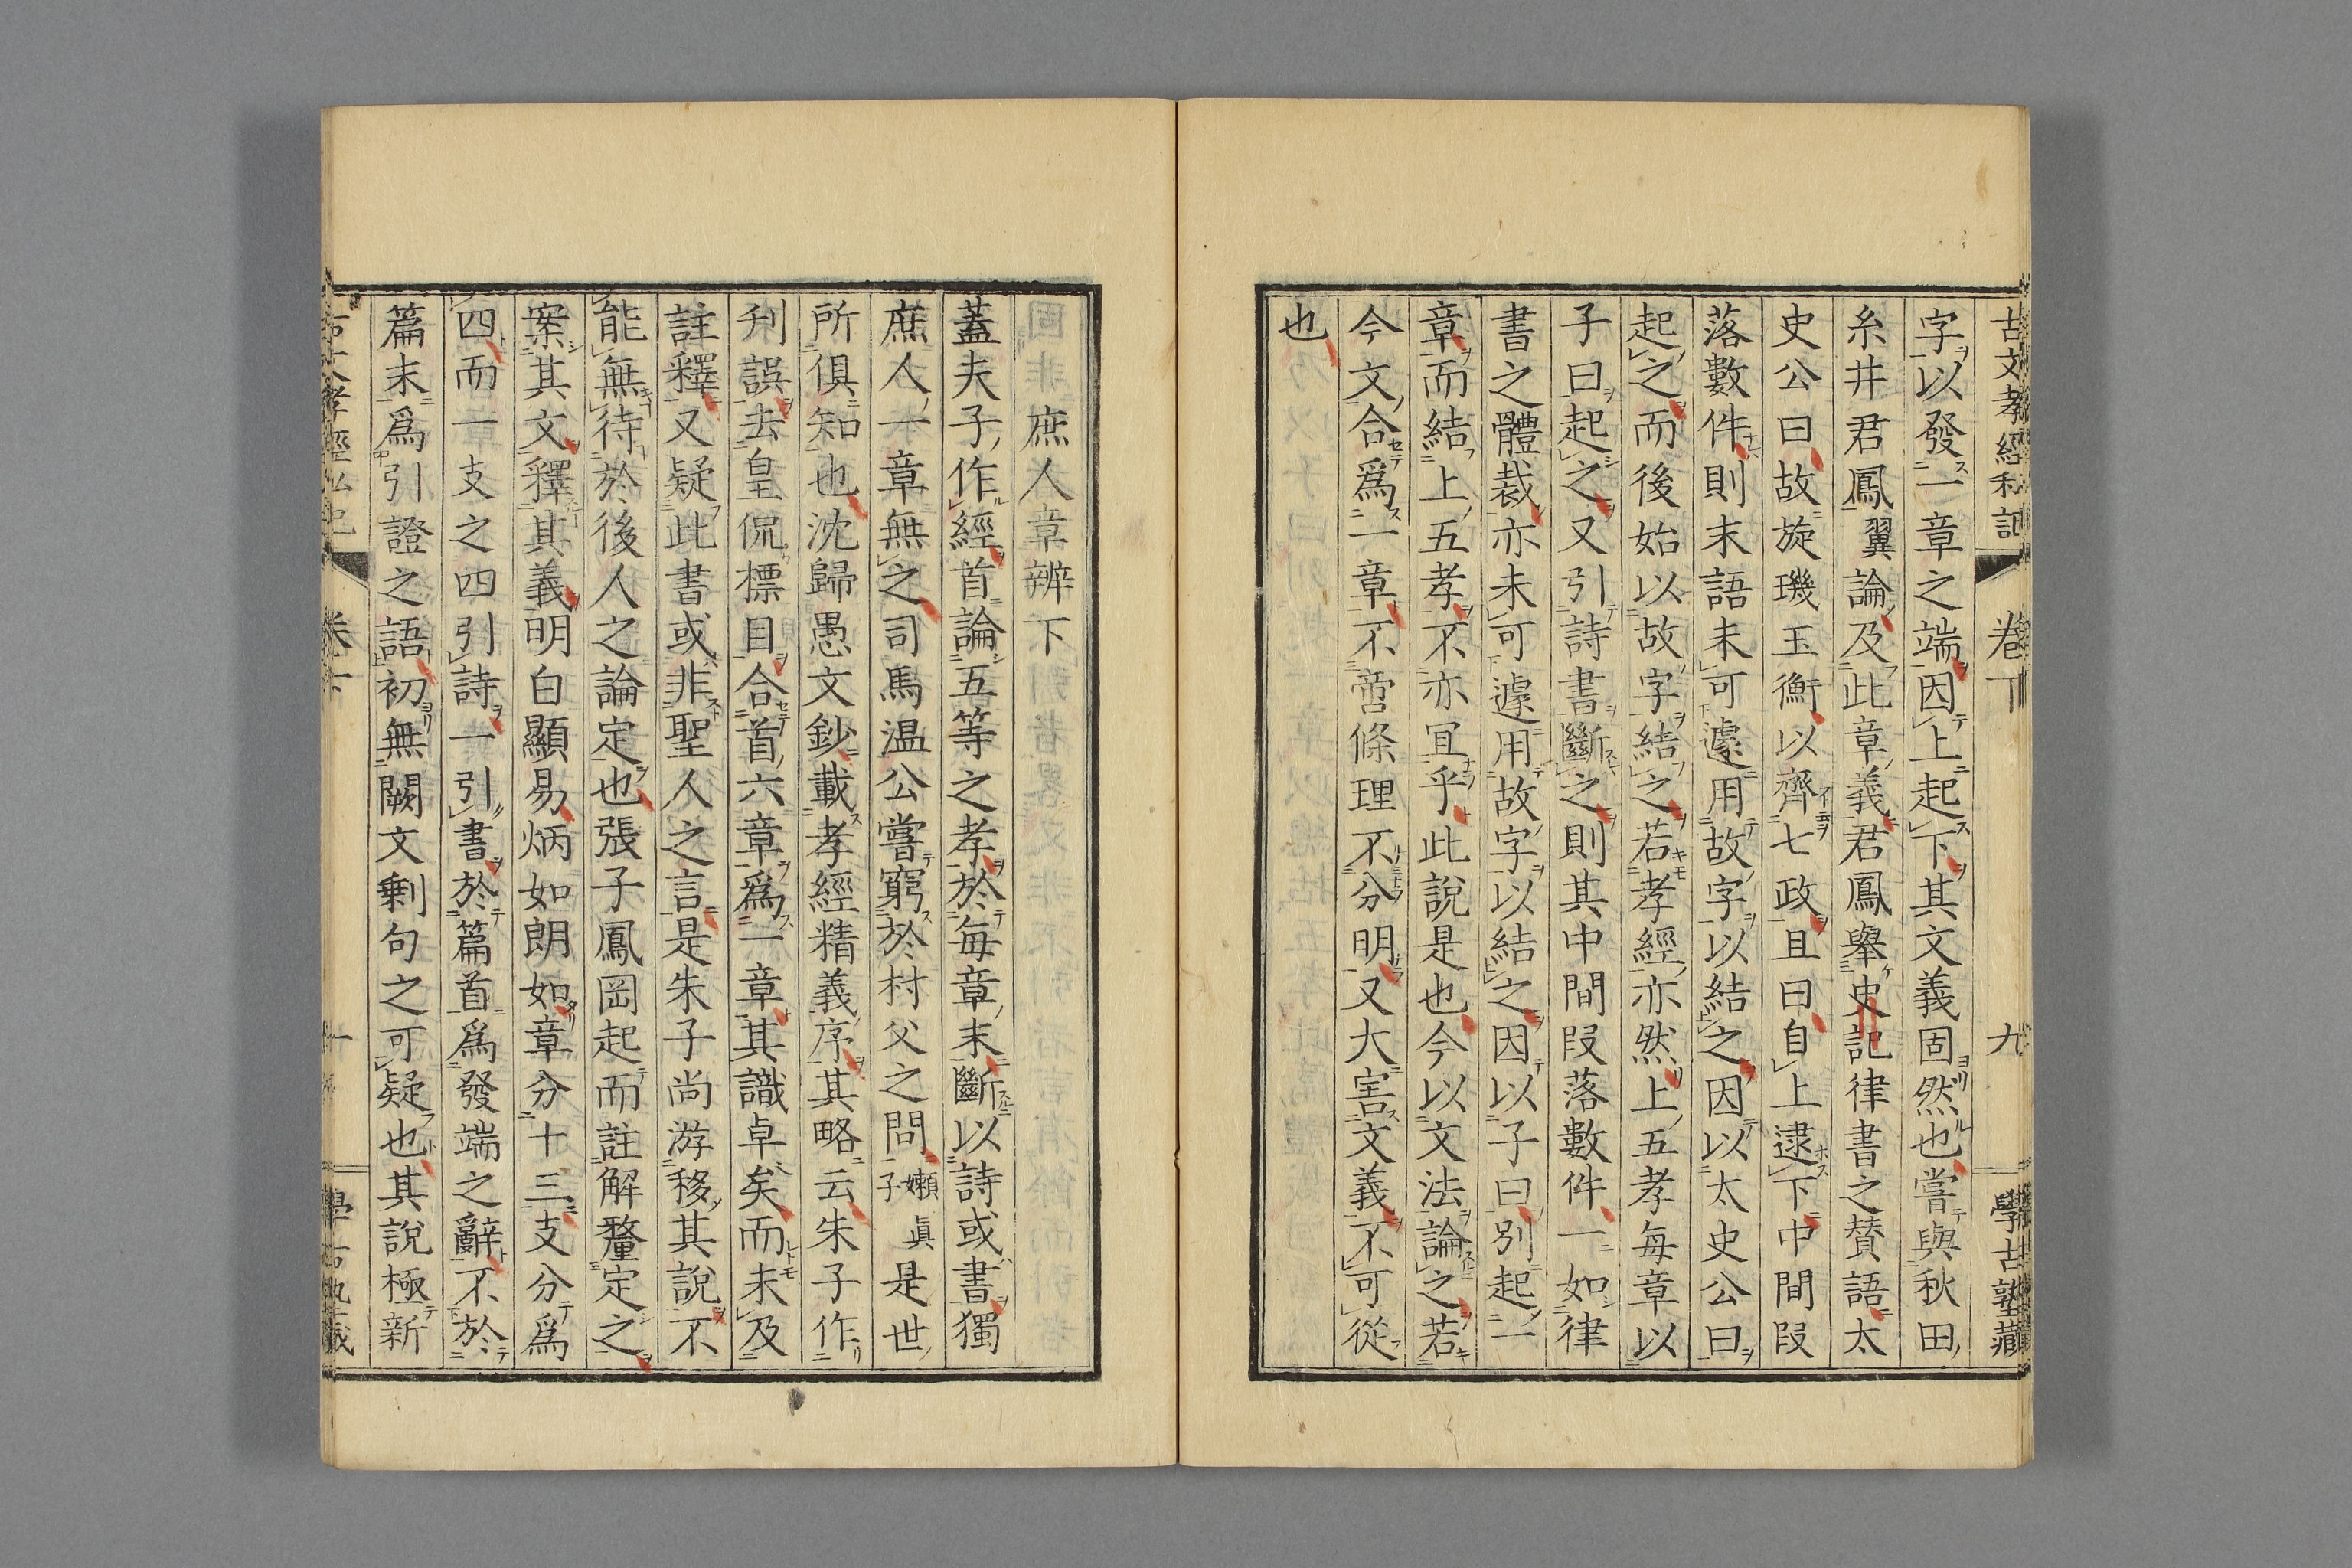 古文孝經私記 卷下 九 學古塾藏
字以發一章之端因上起下其文義固然也嘗與秋田
糸井君鳳翼論及此章義君鳳舉史記律書之賛語太
史公曰故旋璣玉衡以齊七政且曰自上逮下中間段
落數件則末語未可遽用故字以結之因以太史公曰
起之而後始以故字結之若孝經亦然上五孝每章以
子曰起之又引詩書斷之則其中間段落數件一如律
書之體裁亦未可遽用故字以結之因以子曰別起一
章而結上五孝不亦冝乎此說是也今以文法論之若
今文合爲一章不啻條理不分明又大害文義不可從
也
庶人章辨下
蓋夫子作經首論五等之孝於每章末斷以詩或書獨
庶人一章無之司馬温公嘗窮於村父之問嬾眞子是世
所俱知也沈歸愚文鈔載孝經精義序其略云朱子作
刋誤去皇侃標目合首六章爲一章其識卓矣而未及
註釋又疑此書或非聖人之言是朱子尚游移其說不
能無待於後人之論定也張子鳳岡起而註解釐定之
案其文釋其義明白顯易炳如朗如章分十三支分爲
四而一支之四引詩一引書於篇首爲發端之辭不於
篇末爲引證之語初無闕文剩句之可疑也其說極新